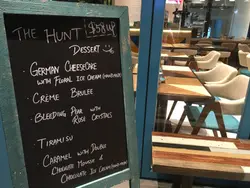 THE HUNT
DESSERT
· GERMAN CHEESECAKE
WITH FLORAL ICE CREAM
· CRÈME BRULEE
· BLEEDING PEAR WITH
ROSE CRYSTALS
· TIRAMISU
· CARAMEL WITH DOUBLE
CHOCOLATE MOUSSE &
CHOCOLATE ICE CREAM